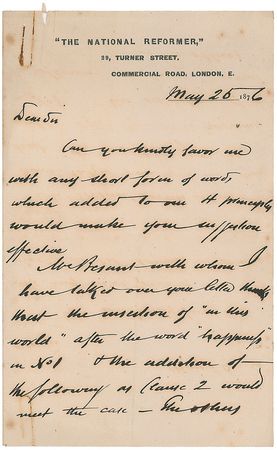 "THE NATIONAL REFORMER,"
29, TURNER STREET,
COMMERCIAL ROAD, LONDON, E.
May 26 1876
Dear Sir
Can you kindly favor me
with any short form of words
which added to our 4 principles
would make your suggestion
effective
Mrs Besant with whom I
have talked over your letter thinks
that the insertion of "in this
world" after the word "happiness"
in No 1 & the addition of
the following as Clause 2 would
meet the case — The others